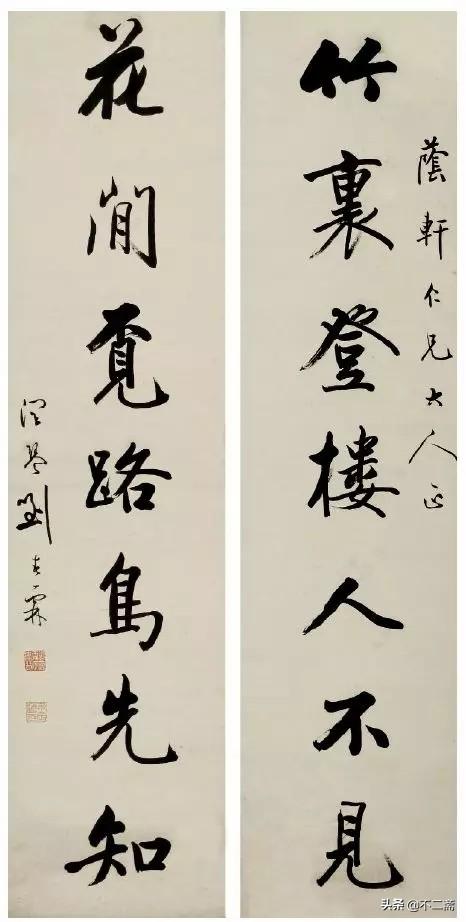 蔭軒仁兄大人正
竹裏登樓人不見
花閒覔路鳥先知
潤琴劉春霖
头条 @不二斋